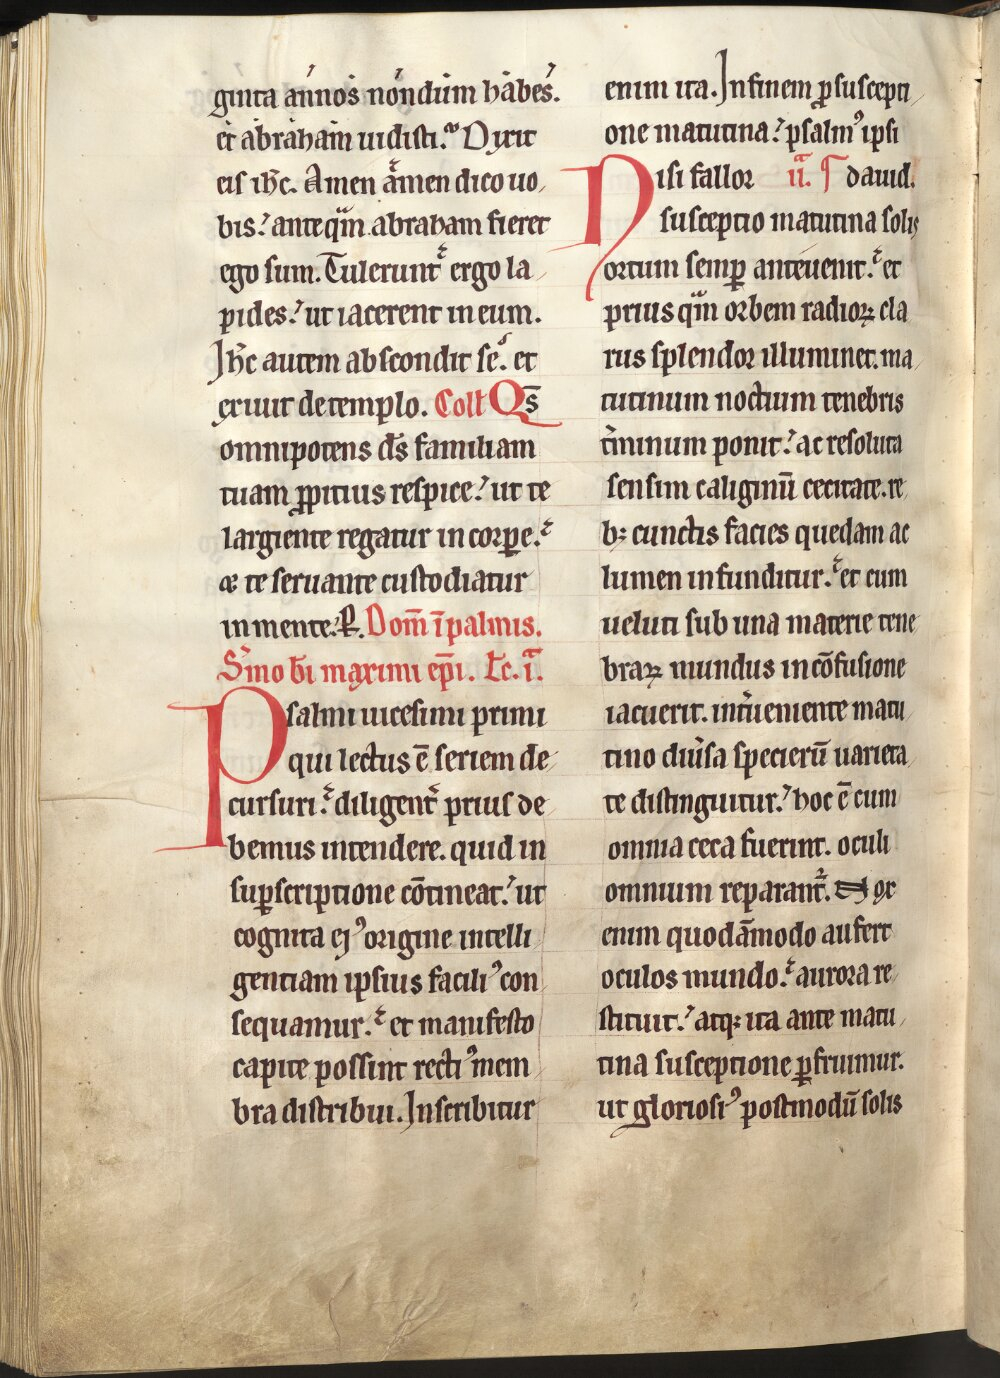 ginta annos nondum habes.
et abraham uidisti. Dixit
eis ihc. Amen amen dico uo
bis. antequm abraham fieret
ego sum. Tulerunt ergo la
pides. ut iacerent in eum.
Jhc autem abscondit se. et
exiuit de templo. Coll Qs
omnipotens ds familiam
tuam ꝓpitius respice. ut te
largiente regatur in corꝑe.
& te seruante custodiatur
in mente. P̶. Dom̄ ī palmis.
Smo bi maximi epī. Lc. ia.
Psalmi uicesimi primi
qui lectus ē seriem de
cursuri. diligent prius de
bemus intendere. quid in
suꝑscriptione cōtineat. ut
cognita ejꝰ origine intelli
gentiam ipsius faciliꝰ con
sequamur. et manifesto
capite possint rectiꝰ mem
bra distribui. Inscribitur
enim ita. In finem ꝑ suscepti
one matutina. psalmꝰ ipsi
Nisi fallor iia. ¶ dauid.
susceptio matutina solis
ortum semꝑ anteuenit. et
prius qum orbem radioꝝ cla
rus splendor illuminet. ma
tutinum noctium tenebris
tminum ponit. ac resoluta
sensim caliginū cecitate. re
bꝫ cunctis facies quedam ac
lumen infunditur. et cum
ueluti sub una materie tene
braꝝ mundus in cōfusione
iacuerit. int̉ueniente matu
tino diu̓sa specierū uarieta
te distinguitur. hoc ē cum
omnia ceca fuerint. oculi
omnium reparant. Nox
enim quodāmodo aufert
oculos mundo. aurora re
stituit. atqꝫ ita ante matu
tina susceptione ꝑfruimur.
ut gloriosiꝰ postmodū solis